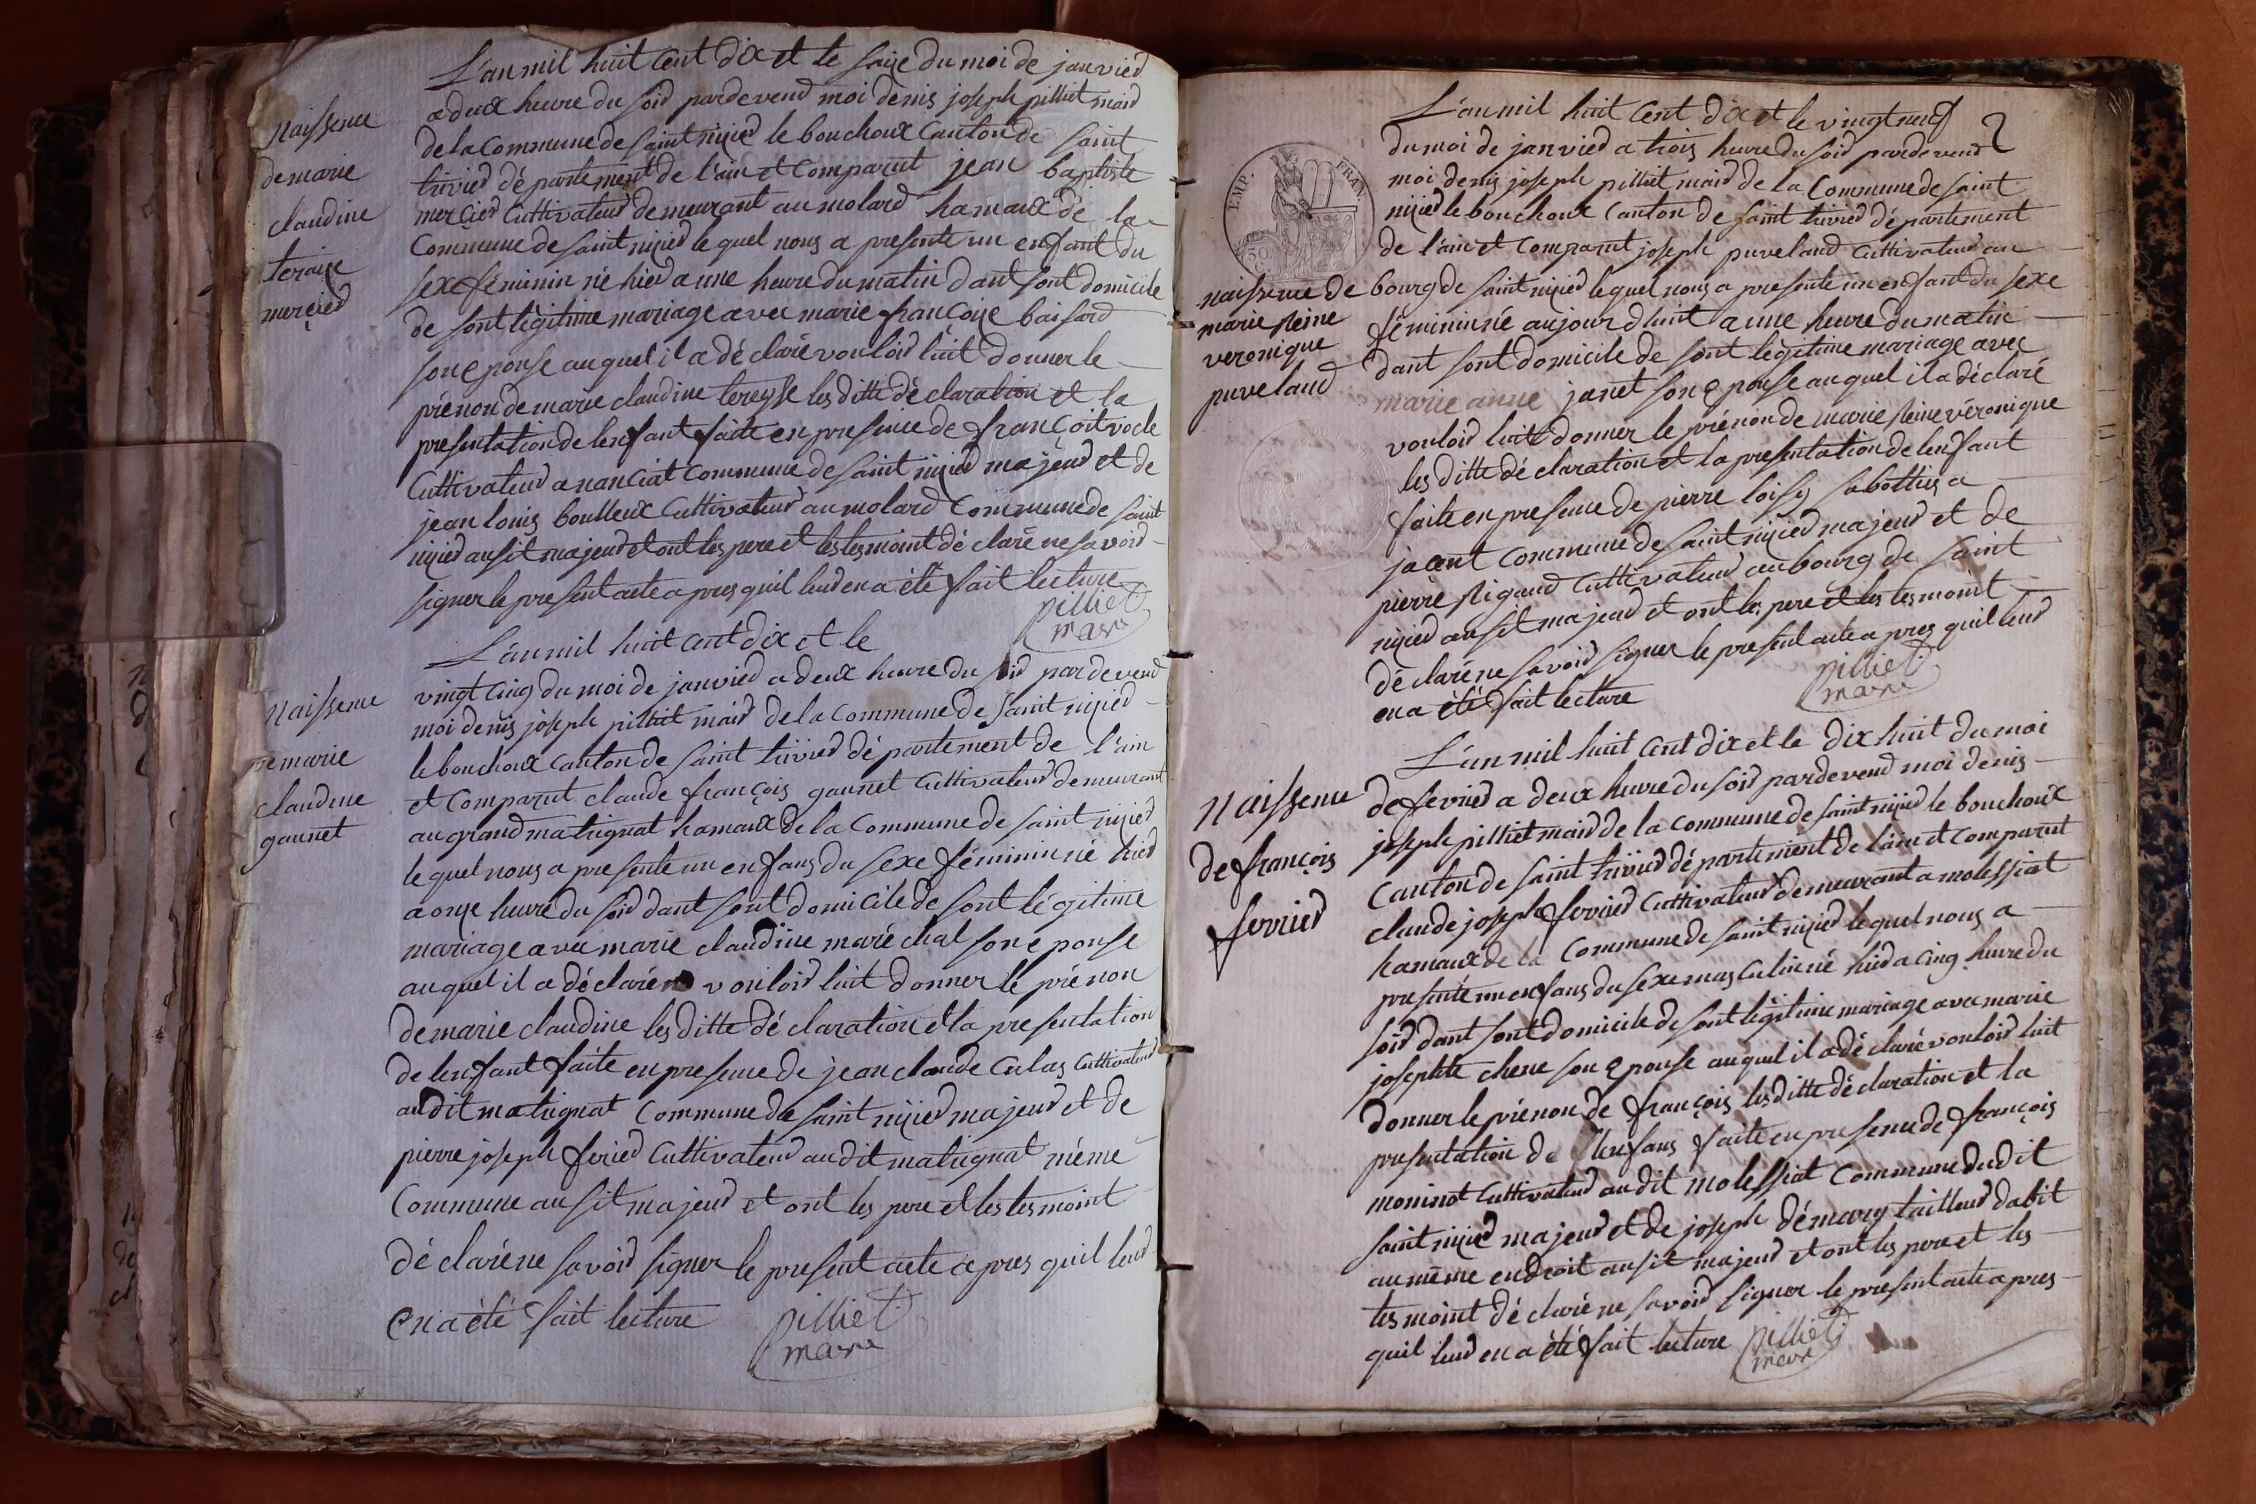 L'an mil huit cent dix et le saize du moi de janvier
Naissence
a deux heure du soir pardevend moi denis joseph pilliet maire
de la Commune de Saint nizier le bouchoux Canton de Saint
de marie
trivier département de l'ain et Comparut jean baptiste
claudine
mercier Cultivateur demeurant au molard hamaux de la
teraize
Commune de Saint nizier lequel nous a presente un enfant du
mercier
sexe féminin né hier a une heure du matin dant sont domicile
de sont légitime mariage avec marie françoize baisard
son eponse auquel il a déclaré vouloir luit donner le
prénon de marie claudine tereysse les ditte déclaration et la
presentation de lenfant faite en presence de françoit vocle
Cultivateur a nanciat Commune de Saint nizier majeur et de
jean louis boulleux Cultivateur au molard Commune de Saint
nizier ausit majeur et ont les pere et les tesmoint déclaré ne savoir
signer le present acte apres quil leur en a été fait lecture
pilliet
maire
L'an mil huit cent dix et le
Naissence
vingt cinq du moi de janvier a deux heure du soir pardevend
moi denis joseph pilliet maire de la Commune de Saint nizier
de marie
le bouchoux Canton de Saint trivier département de l'ain
claudine
et Comparut claude françois gaunet Cultivateur demeurant
gaunet
au grand matrignat hamaux de la Commune de Saint nizier
lequel nous a presente un enfans du sexe féminin né hier
a onze heure du soir dant sont domicile de sont légitime
mariage avec marie claudine maréchal son eponse
auquel il a déclaré vouloir luit donner le prénon
de marie claudine les ditte déclaration et la presentation
de lenfant faite en presence de jean claude Culas Cultivateur
audit matrignat Commune de Saint nizier majeur et de
pierre joseph ferier Cultivateur audit matrignat même
Commune ausit majeur et ont les pere et les tesmoint
déclaré ne savoir signer le present acte apres quil leur
en a été fait lecture
pilliet
maire
L'an mil huit cent dix et le vingt neuf
2
du moi de janvier a trois heure du soir pardevend
moi denis joseph pilliet maire de la Commune de Saint
EMP. FRAN.
nizier le bouchoux Canton de Saint trivier département
de l'ain et Comparut joseph puveland Cultivateur au
50
naissence de
bourg de Saint nizier lequel nous a presente un enfant du sexe
marie Reine
féminin né aujourdhuit a une heure du matin
veronique
dant sont domicile de sont légitime mariage avec
puveland
marie anne janet son eponse auquel il a déclaré
vouloir luit donner le prénon de marie Reine véronique
les ditte déclaration et la presentation de lenfant
faite en presence de pierre loisy sabottier a
jacent Commune de Saint nizier majeur et de
pierre Rigaud Cultivateur au bourg de Saint
nizier ausit majeur et ont les pere et les tesmoint
déclaré ne savoir signer le present acte apres quil leur
en a été fait lecture
pilliet
maire
L'an mil huit cent dix et le dix huit du moi
Naissence
de fevrier a deux heure du soir pardevend moi denis
joseph pilliet maire de la Commune de Saint nizier le bouchoux
de françois
Canton de Saint trivier département de l'ain et Comparut
ferrier
claude joseph ferrier Cultivateur demeurant a molessiat
hamaux de la Commune de Saint nizier lequel nous a
presente un enfans du sexe masculin né hier a cinq heure du
soir dant sont domicile de sont légitime mariage avec marie
josephte chene son eponse auquel il a déclaré vouloir luit
donner le prénon de françois les ditte déclaration et la
presentation de lenfans faite en presence de françois
moninot Cultivateur audit molessiat Commune dudit
Saint nizier majeur et de joseph démary tailleur dabit
au même endroit ausit majeur et ont les pere et les
tesmoint déclaré ne savoir signer le present acte apres
quil leur en a été fait lecture
pilliet
maire